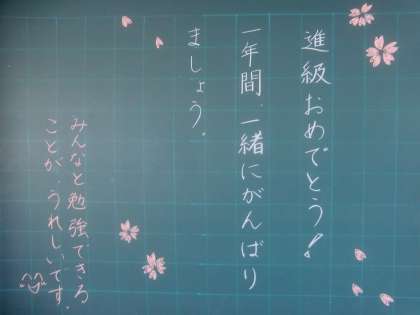 進級おめでとう!
一年間、一緒にがんばり
ましょう。
みんなと勉強できる
ことが、うれしいです。